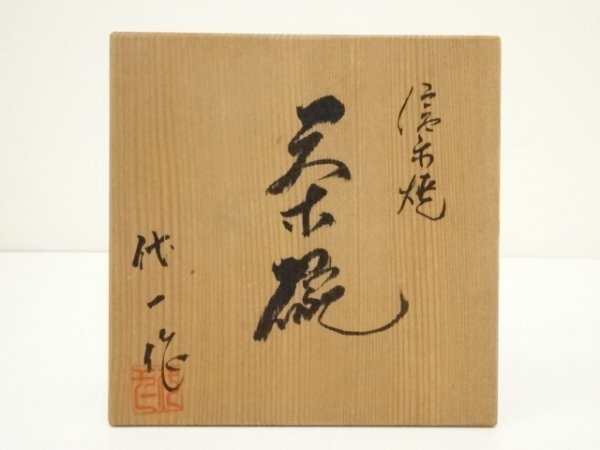 信楽焼
茶碗
代一作